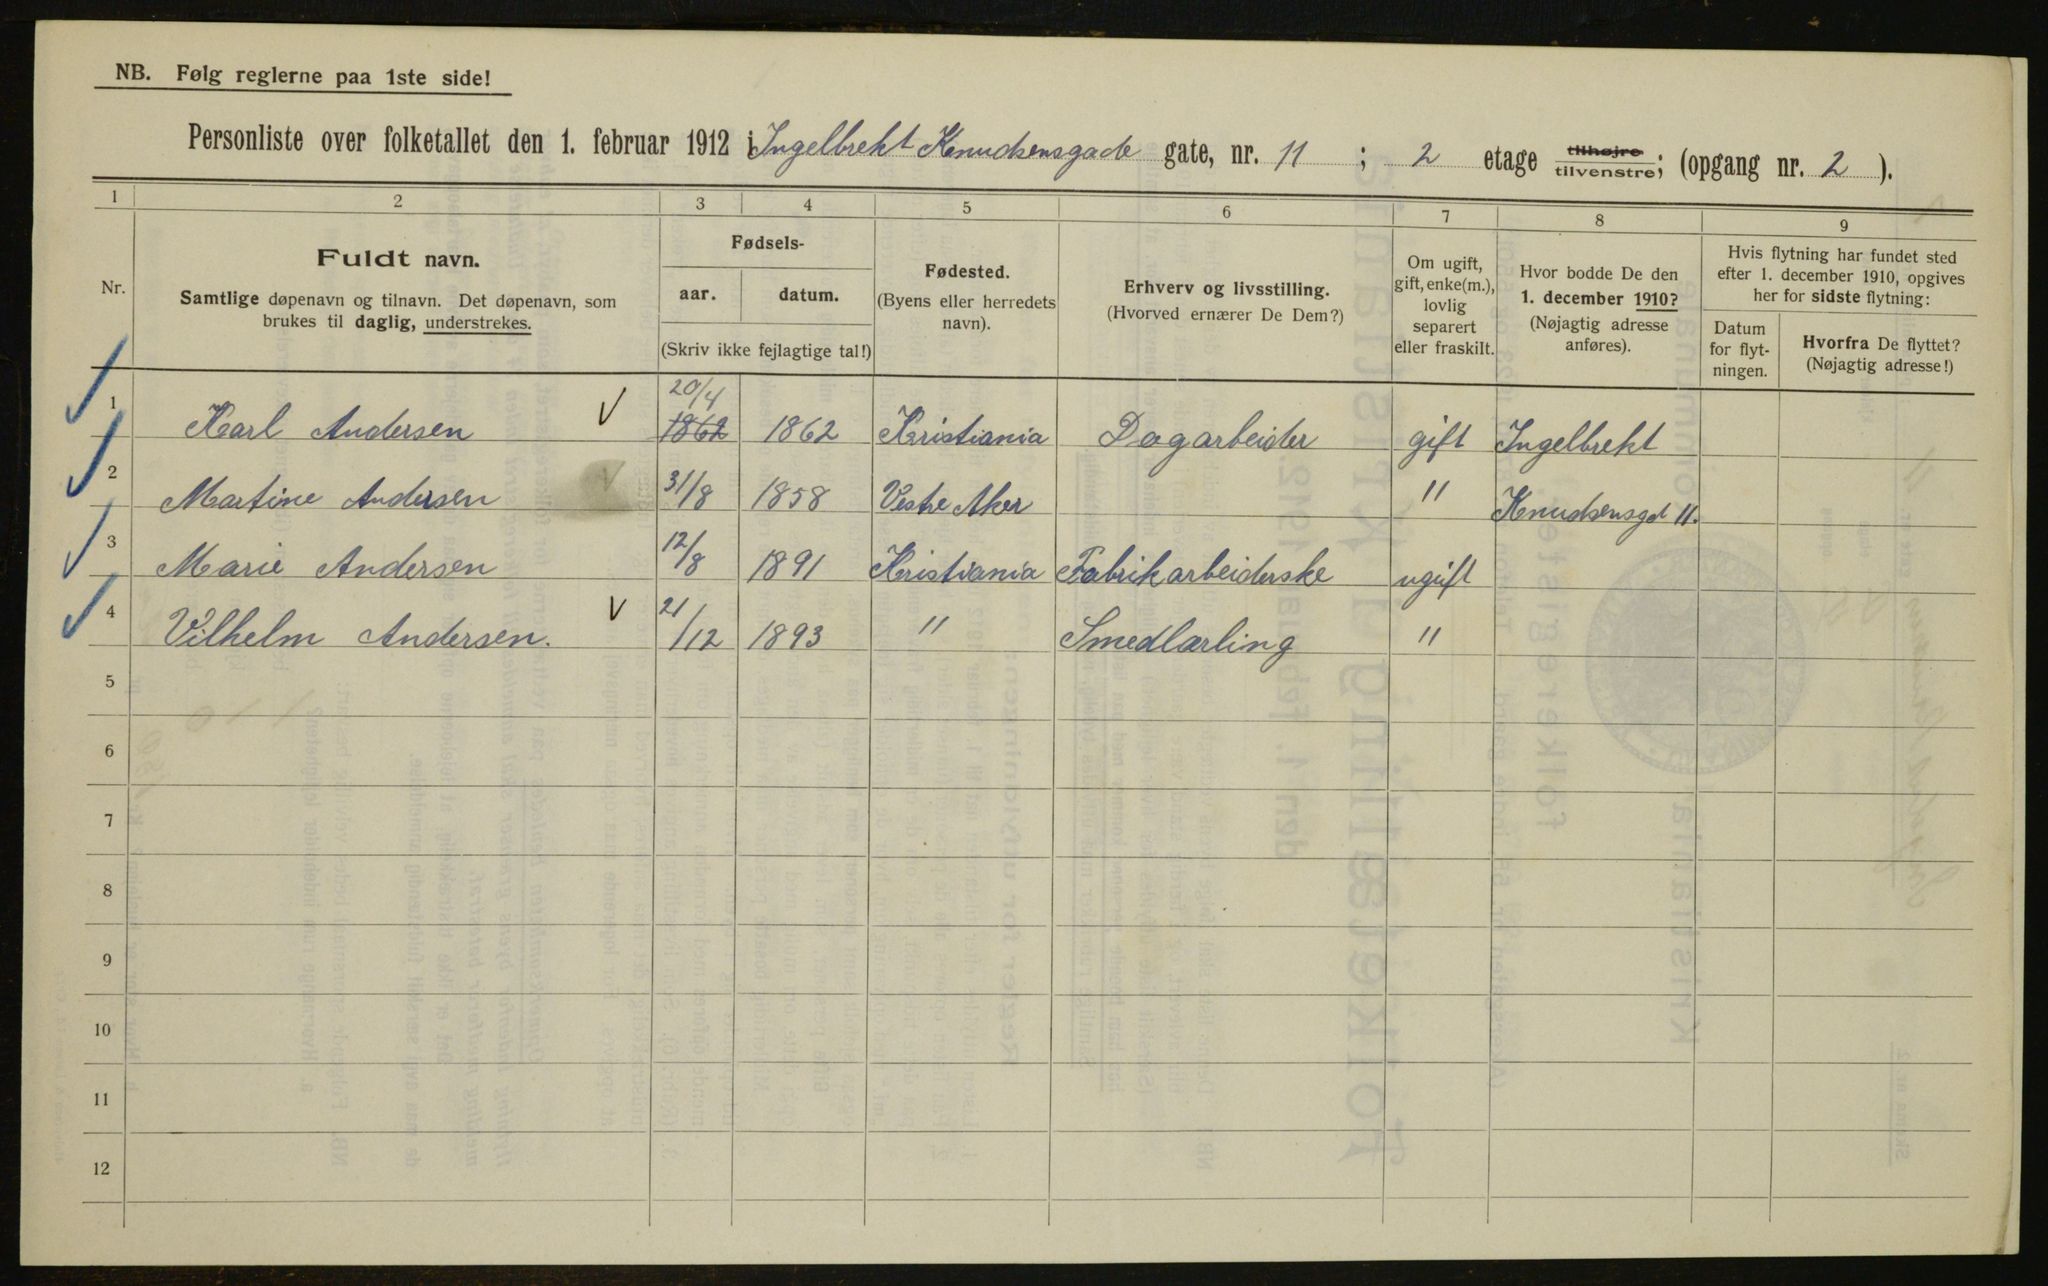 NB. Følg reglerne paa 1ste side!
Personliste over folketallet den 1. februar 1912 i Ingelbrekt Knudsensgade gate, nr. 11 ; 2 etage tilhøjre tilvenstre; (opgang nr. 2 ).
1 2 3 4 5 6 7 8 9
Nr.
Fuldt navn.
Samtlige døpenavn og tilnavn. Det døpenavn, som
brukes til daglig, understrekes.
Fødsels-
aar. datum.
(Skriv ikke fejlagtige tal!)
Fødested.
(Byens eller herredets
navn).
Erhverv og livsstilling.
(Hvorved ernærer De Dem?)
Om ugift,
gift, enke(m.),
lovlig
separert
eller fraskilt.
Hvor bodde De den
1. december 1910?
(Nøjagtig adresse
anføres).
Hvis flytning har fundet sted
efter 1. december 1910, opgives
her for sidste flytning:
Datum
for flyt-
ningen.
Hvorfra De flyttet?
(Nøjagtig adresse!)
1 Karl Andersen 20/4 1862 1862 Kristiania Dagarbeider gift Ingelbrekt
2 Martine Andersen 31/8 1858 Vestre Aker " Knudsensgd 11.
3 Marie Andersen 12/8 1891 Kristiania Fabrikarbeiderske ugift
4 Vilhelm Andersen. 21/12 1893 " Smedlærling "
5
6
7
8
9
10
11
12